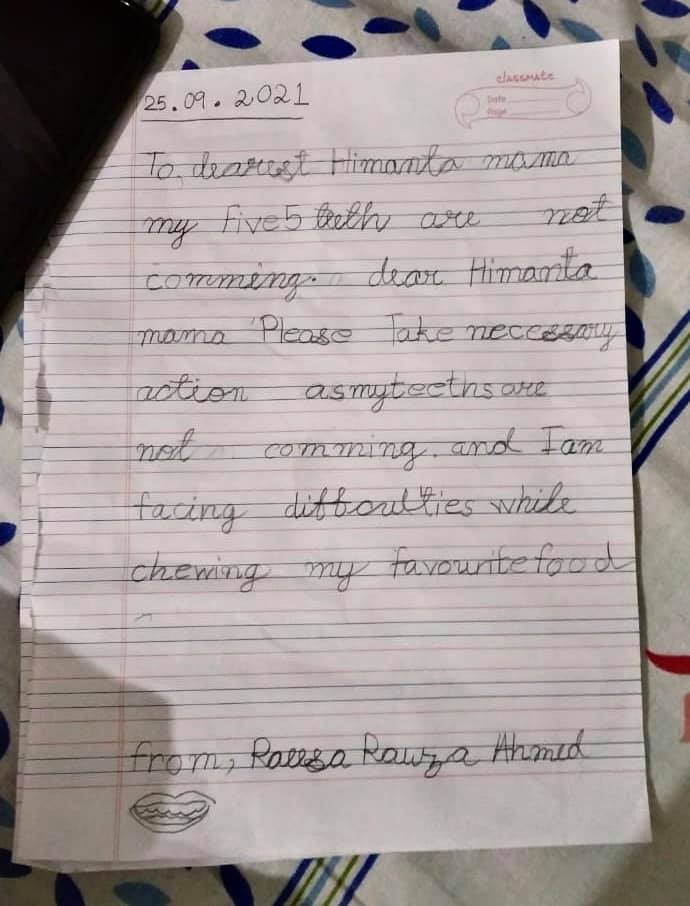 classmate
Date
Page
25.09.2021
To, dearest Himanta mama
my five5 teeth are not
comming. dear Himanta
mama Please Take necessary
action asmyteethsare
not comming. and I am
facing difficulties while
chewing my favourite food
from, Raeesa Rawza Ahmed